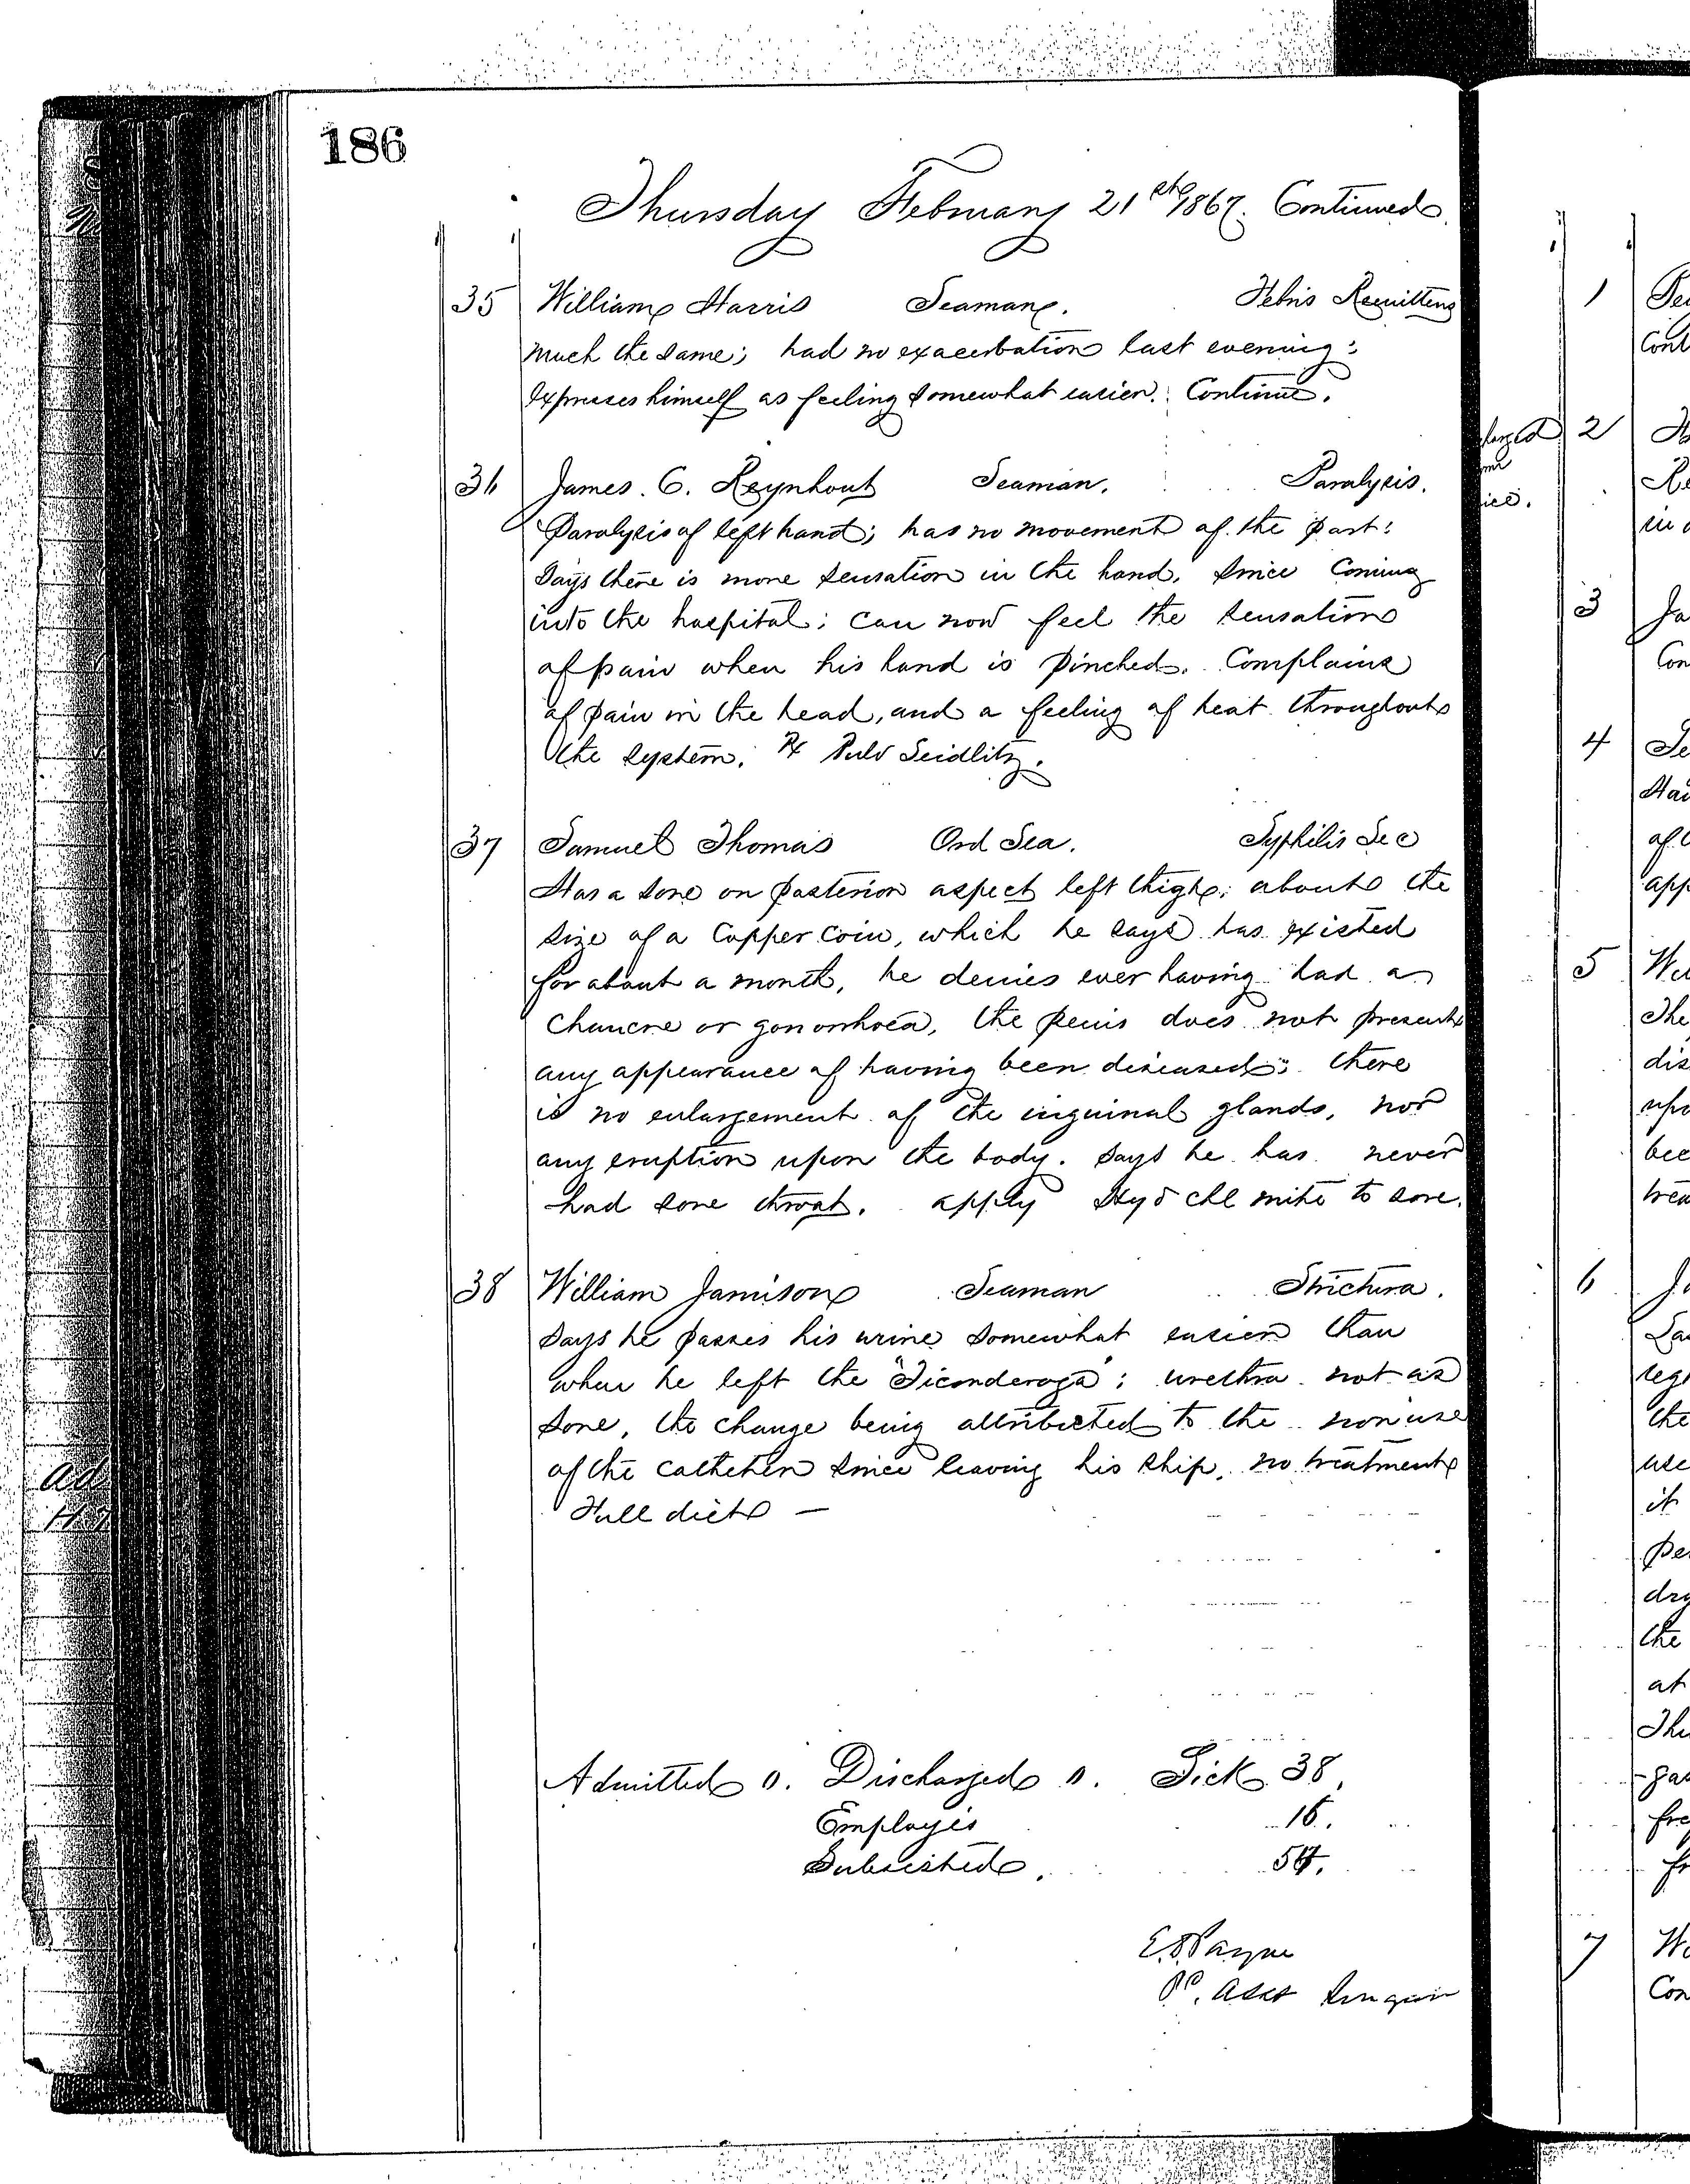 186
Thursday February 21st 1867. Continued
35 William Harris Seaman. Febris Remittens
much the same; had no exacerbation last evening:
expresses himself as feeling somewhat easier. Continue.
36 James. C. Reynhout Seaman. Paralysis.
Paralysis of left hand; has no movement of the part:
Says there is more sensation in the hand, since coming
into the hospital; can now feel the sensation
of pain when his hand is pinched. Complains
of pain in the head, and a feeling of heat throughout
the system. ℞ Pulv Seidlitz.
37 Samuel Thomas Ord Sea. Syphilis Sec
Has a sore on posterior aspect left thigh; about the
size of a Copper coin, which he says has existed
for about a month, he denies ever having had a
Chancre or gonorrhoea, the penis does not present
any appearance of having been diseased: there
is no enlargement of the inguinal glands, nor
any eruption upon the body. Says he has never
had sore throat. apply Hyd chl mite to sore.
38 William Jamison Seaman Strictura.
Says he passes his urine somewhat easier than
when he left the "Ticonderoga"; urethra not as
sore, the change being attributed to the non use
of the catheter since leaving his ship. no treatment
Full diet —
Admitted 0. Discharged 0. Sick 38.
Employés 16.
Subsisted. 54.
E. S. Payne
Pd. Asst Surgeon
1
2
3
4
5
6
7